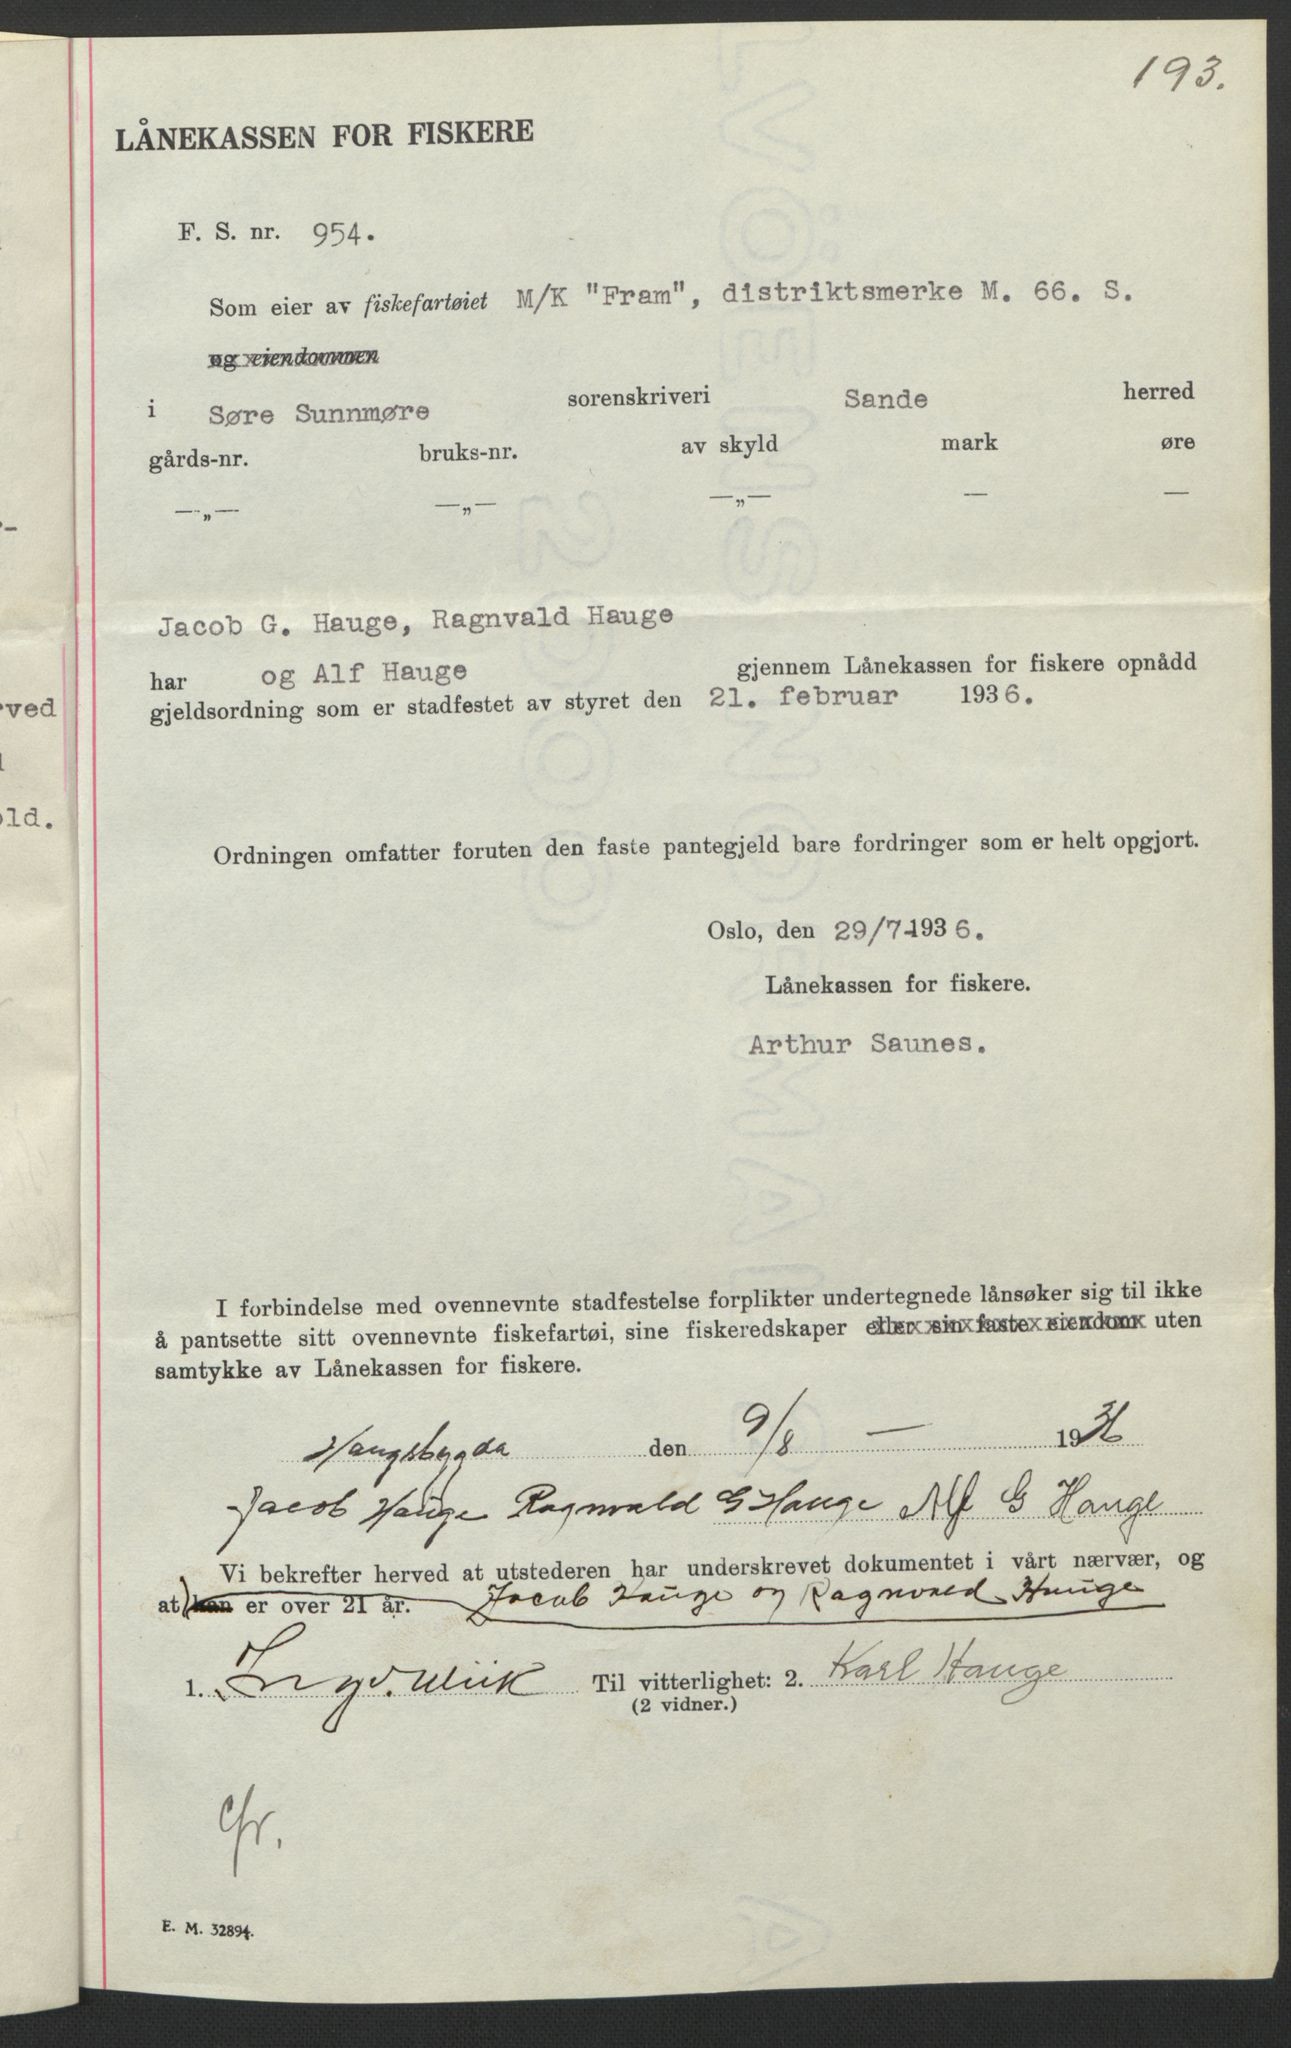 193.
LÅNEKASSEN FOR FISKERE
F. S. nr. 954.
Som eier av fiskefartøiet M/K "Fram", distriktsmerke M. 66. S.
og eiendommen
i Søre Sunnmøre sorenskriveri Sande herred
gårds-nr. bruks-nr. av skyld mark øre
—„— —„— —„— — —
Jacob G. Hauge, Ragnvald Hauge
har og Alf Hauge gjennem Lånekassen for fiskere opnådd
gjeldsordning som er stadfestet av styret den 21. februar 1936.
Ordningen omfatter foruten den faste pantegjeld bare fordringer som er helt opgjort.
Oslo, den 29/7-1936.
Lånekassen for fiskere.
Arthur Saunes.
I forbindelse med ovennevnte stadfestelse forplikter undertegnede lånsøker sig til ikke
å pantsette sitt ovennevnte fiskefartøi, sine fiskeredskaper eller sin faste eiendom uten
samtykke av Lånekassen for fiskere.
Haugsbygda den 9/8 — 1936
Jacob Hauge Ragnvald G Hauge Alf G Hauge
Vi bekrefter herved at utstederen har underskrevet dokumentet i vårt nærvær, og
at han er over 21 år. Jacob Hauge og Ragnvald Hauge
1. Ingv. Wiik Til vitterlighet: 2. Karl Hauge
(2 vidner.)
E. M. 32894.
rved
old.